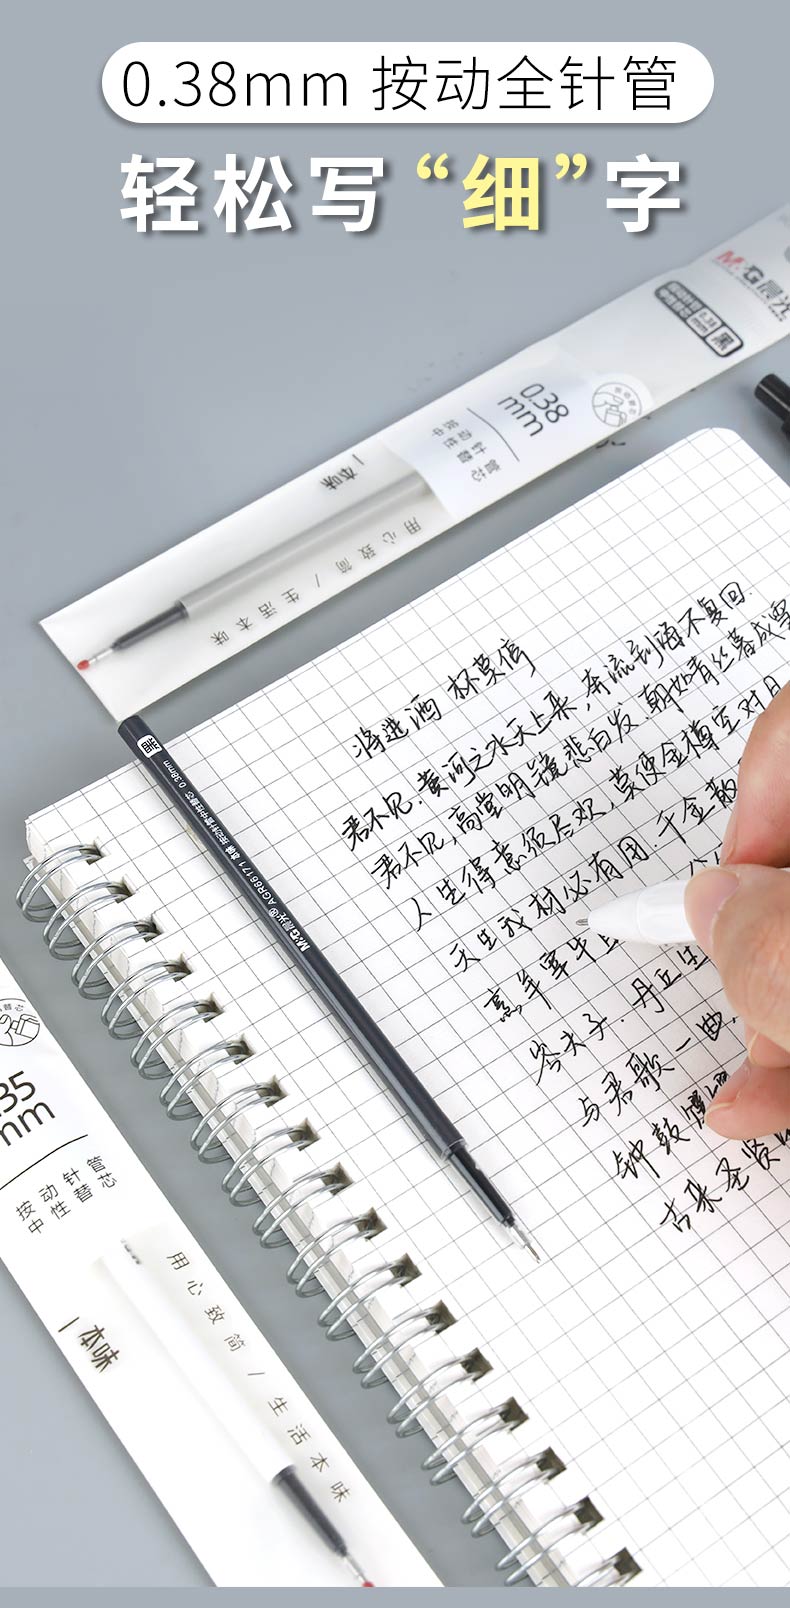 0.38mm 按动全针管
轻松写“细”字
M&G晨光
按动针管
中性替芯
0.38
mm
黑
0.38
mm
按动针管
中性替芯
一本味
用心致简/生活本味
将进酒 杯莫停
君不见,黄河之水天上来,奔流到海不复回.
君不见,高堂明镜悲白发,朝如青丝暮成雪
人生得意须尽欢,莫使金樽空对月
天生我材必有用.千金散
烹羊宰牛
岑夫子.丹丘生
与君歌一曲,
钟鼓馔
古来圣贤
黑 0.38mm
M&G晨光® AGR66171 按动针管中性替芯
35
mm
按动针管
中性替芯
一本味
用心致简/生活本味